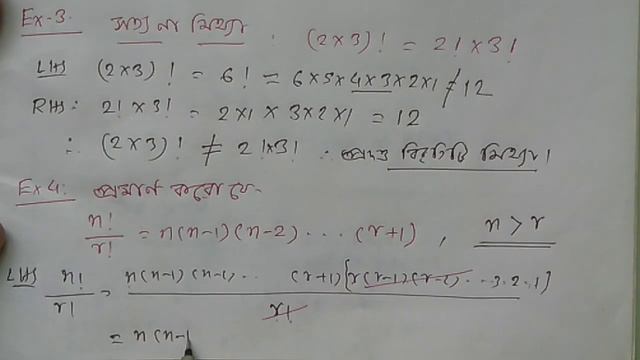 Ex-3. সত্য না মিথ্যা : (2×3)! = 2! × 3!
LHS (2×3)! = 6! = 6×5×4×3×2×1 ≠ 12
RHS: 2! × 3! = 2×1 × 3×2×1 = 12
∴ (2×3)! ≠ 2!×3! ∴ প্রদত্ত বিবৃতিটি মিথ্যা।
Ex 4: প্রমাণ করো যে-
n!/r! = n(n-1)(n-2) ... (r+1), n > r
LHS n!/r! = n(n-1)(n-1)... (r+1)[r(r-1)(r-2)...3.2.1]/r!
= n(n-1